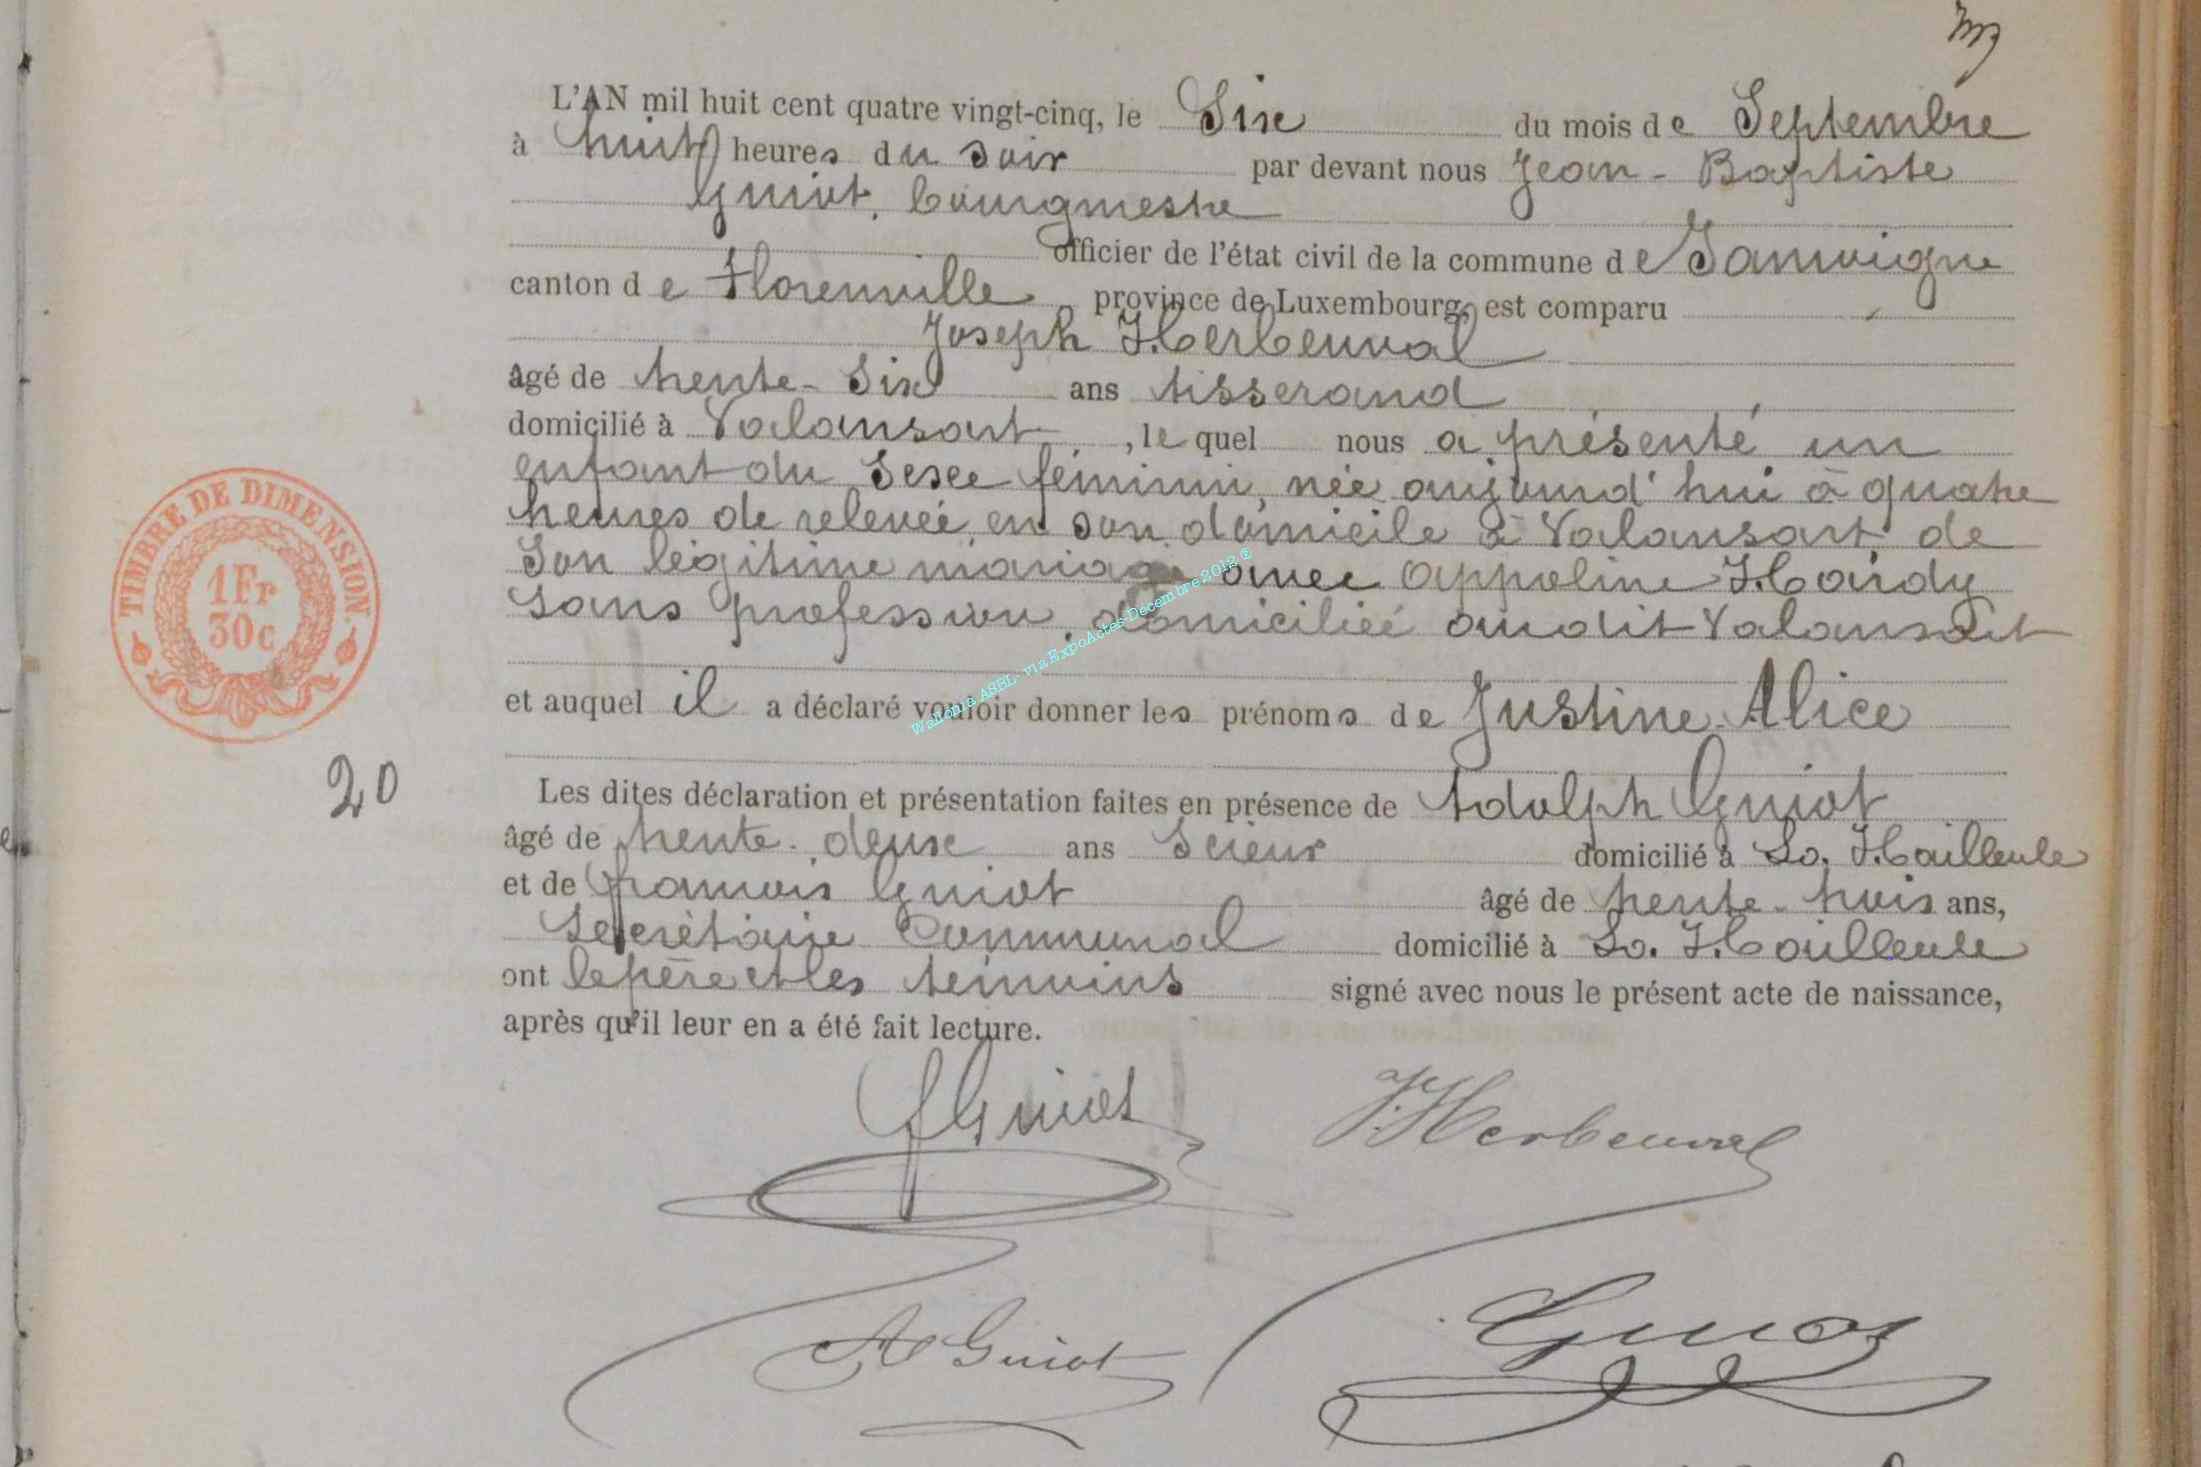 L'AN mil huit cent quatre vingt-cinq, le Six du mois de Septembre
à huit heures du soir par devant nous Jean-Baptiste
Guiot, bourgmestre
officier de l'état civil de la commune de Jamoigne
canton de Florenville province de Luxembourg, est comparu
Joseph Herbeuval
âgé de trente-six ans tisserand
domicilié à Valansart, lequel nous a présenté un
enfant du sexe féminin, née aujourd'hui à quatre
heures de relevée, en son domicile à Valansart de
son légitime mariage avec Appoline Hardy
sans profession, domiciliée audit Valansart
et auquel il a déclaré vouloir donner les prénoms de Justine Alice
20
Les dites déclaration et présentation faites en présence de Adolph Guiot
âgé de trente-deux ans scieur domicilié à La Hailleule
et de François Guiot âgé de trente-trois ans,
Secrétaire Communal domicilié à La Hailleule
ont le père et les témoins signé avec nous le présent acte de naissance,
après qu'il leur en a été fait lecture.
TIMBRE DE DIMENSION.
1 Fr
30 c
Wallonia ASBL - via ExpoActes-Decembre 2012 ©
f Guiot J. Herbeuval
A Guiot Guiot